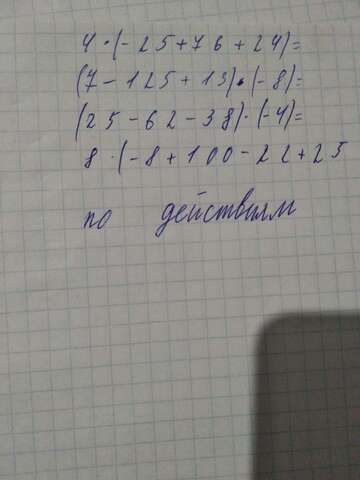 4·(-25+76+24)=
(7-125+13)·(-8)=
(25-62-38)·(-4)=
8·(-8+100-22+25
по действиям